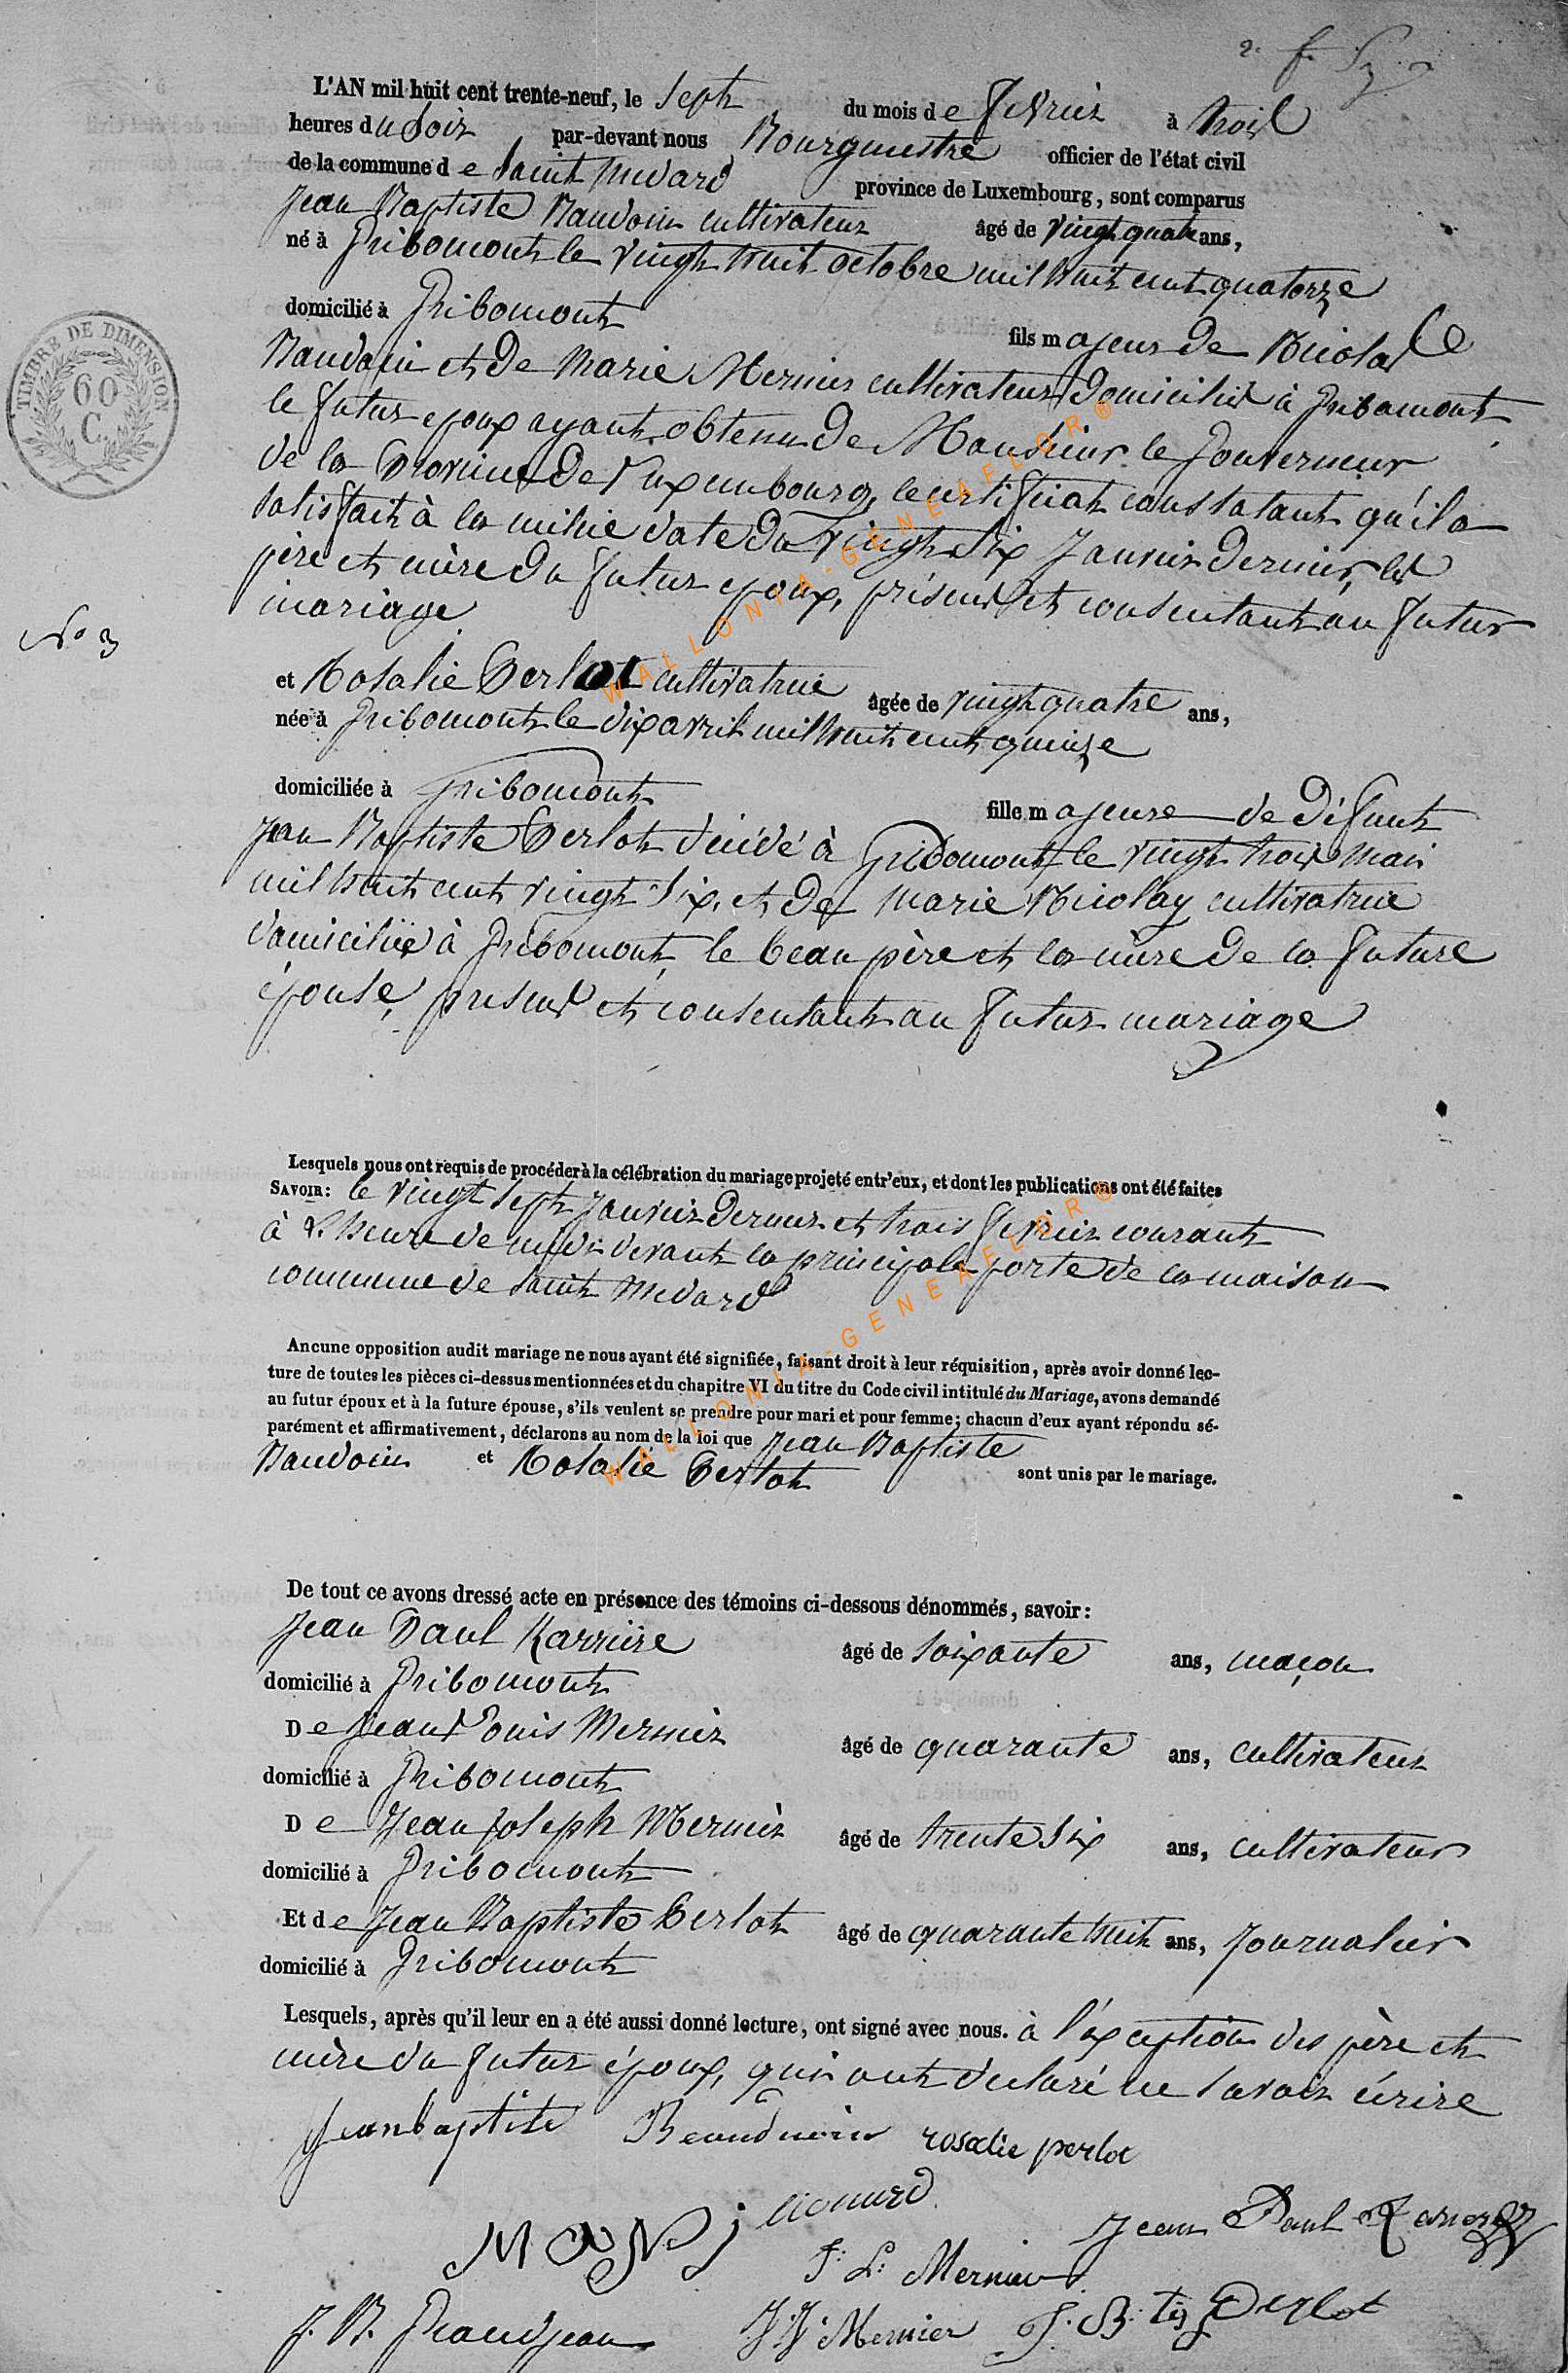 L'AN mil huit cent trente-neuf, le Sept du mois de fevrier à trois
heures du Soir par-devant nous Bourgmestre officier de l'état civil
de la commune de Saint Medard province de Luxembourg, sont comparus
Jean Baptiste Baudoin cultivateur âgé de vingt quatre ans,
né à Gribomont le vingt huit octobre mil huit cent quatorze
domicilié à Gribomont fils majeur de Nicolas
Baudoin et de Marie Mernier cultivateurs domiciliés à Gribomont
le futur epoux ayant obtenu de Monsieur le Gouverneur
de la Province de Luxembourg, le certificat constatant qu'il a
satisfait à la milice date du vingt Six Janvier dernier, les
père et mère du futur epoux, présens et consentant au futur
mariage
N° 3
et Rosalie Perlot cultivatrice âgée de vingt quatre ans,
née à Gribomont le dix avril mil huit cent quinze
domiciliée à Gribomont fille majeure de Défunt
Jean Baptiste Perlot décédé à Gribomont le vingt trois Mai
mil huit cent vingt Six, et de Marie Nicolay cultivatrice
domiciliée à Gribomont, le beau père et la mère de la future
épouse, presens et consentant au futur mariage
Lesquels nous ont requis de procéder à la célébration du mariage projeté entr'eux, et dont les publications ont été faites
SAVOIR: le vingt Sept Janvier dernier et trois fevrier courant
à L'heure de midi devant la principale porte de la maison
commune de Saint Medard
Aucune opposition audit mariage ne nous ayant été signifiée, faisant droit à leur réquisition, après avoir donné lec-
ture de toutes les pièces ci-dessus mentionnées et du chapitre VI du titre du Code civil intitulé du Mariage, avons demandé
au futur époux et à la future épouse, s'ils veulent se prendre pour mari et pour femme; chacun d'eux ayant répondu sé-
parément et affirmativement, déclarons au nom de la loi que Jean Baptiste
Baudoin et Rosalie Perlot sont unis par le mariage.
De tout ce avons dressé acte en présence des témoins ci-dessous dénommés, savoir:
Jean Paul Karrière âgé de soixante ans, maçon
domicilié à Gribomont
De Jean Louis Mernier âgé de quarante ans, cultivateur
domicilié à Gribomont
De Jean Joseph Mernier âgé de trente Six ans, cultivateur
domicilié à Gribomont
Et de Jean Baptiste Perlot âgé de quarante huit ans, Journalier
domicilié à Gribomont
Lesquels, après qu'il leur en a été aussi donné lecture, ont signé avec nous. à l'exception des père et
mère du futur époux, qui ont déclaré ne savoir écrire
Jean baptiste Beauduoin rosalie perlot
Jean Paul
J: L: Mernier
J. B. Grandjean JJ Mernier J. B. te Perlot
TIMBRE DE DIMENSION
60
C.
WALLONIA-GENEAFLOR®
WALLONIA-GENEAFLOR®